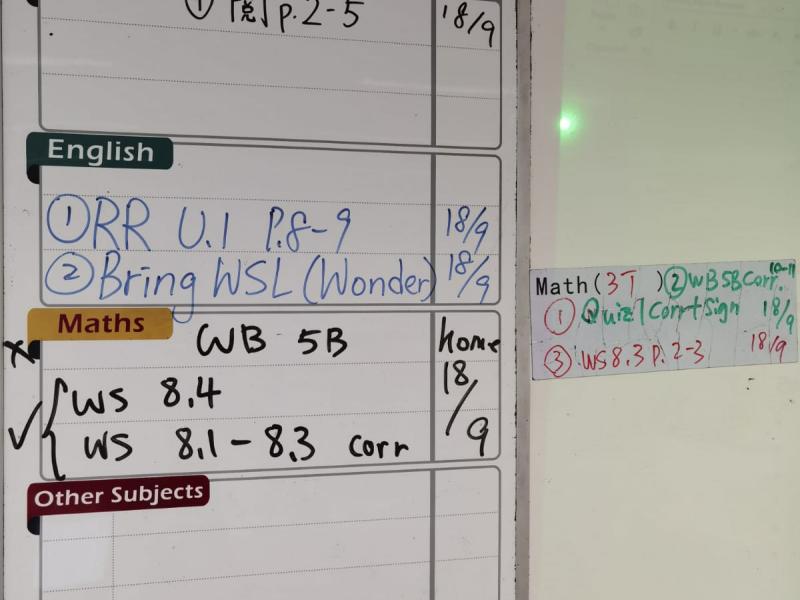 ① 「悅」 p. 2-5 18/9
English
① RR U.1 P.8-9 18/9
② Bring WSL (Wonder) 18/9
Maths
WB 5B home
WS 8.4 18/9
WS 8.1 - 8.3 corr
Other Subjects
Math (3T) ② WB 5B Corr. 10-11
① Quiz 1 Corr + Sign 18/9
③ WS 8.3 P. 2-3 18/9